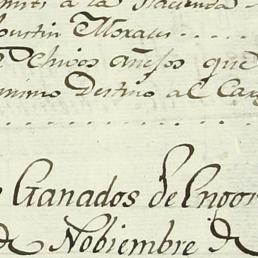 a la Hacienda
Agustin Morales.....
Chivos añejos que
mismo Destino al Carg
...............
Ganados de Engor
de Nobiembre de